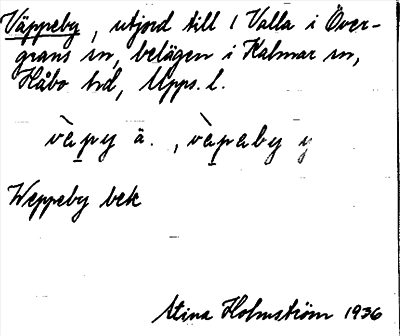 Väppeby, utjord till 1 Valla i Över-
grans sn, belägen i Kalmar sn,
Håbo hd, Upps. l.
vàpy ä. , vàpaby y
Weppeby bek
Stina Holmström 1936